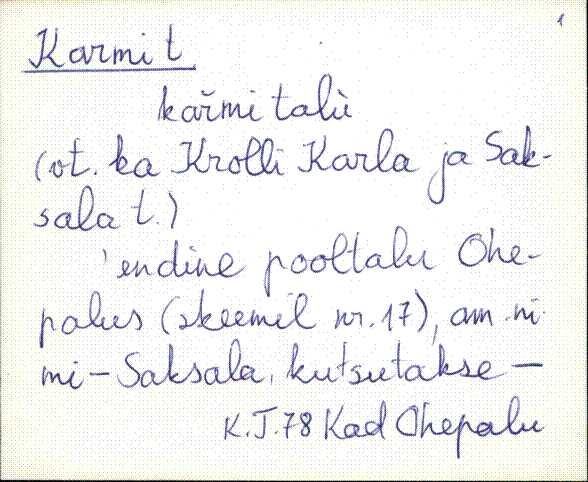 1
Karmi t
kařmi talù
(vt. ka Krolli Karla ja Sak-
sala t.)
'endine pooltalu Ohe-
palus (skeemil nr. 17), am. ni-
mi – Saksala, kutsutakse –
K.J. 78 Kad Ohepalu